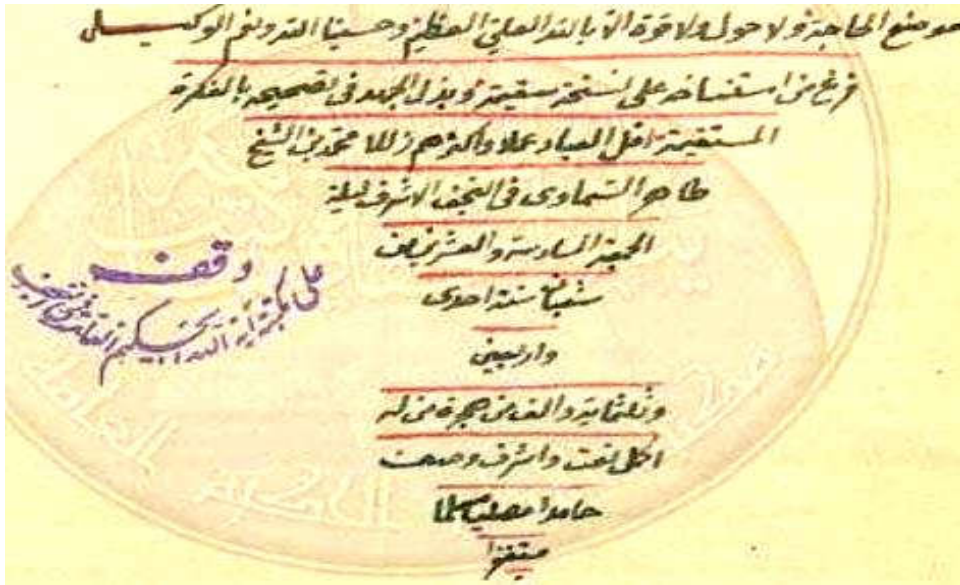 هو موضع الحاجة ولا حول ولا قوة الا بالله العلي العظيم وحسبنا الله ونعم الوكيل
فرغ من استنساخه على نسخة سقيمة وبذل الجهد في تصحيحه بالفكرة
المستقيمة اقل العباد عملا واكثرهم زللا محمد بن الشيخ
طاهر السماوي في النجف الاشرف ليلة
الجمعة السادسة والعشرين من
شعبان سنة احدى
واربعين
وثلثماية والف من هجرة من له
اكمل نعت واشرف وصف
حامدا مصليا مسلما
مستغفرا
وقف
على مكتبة آية الله الحكيم العامة في النجف